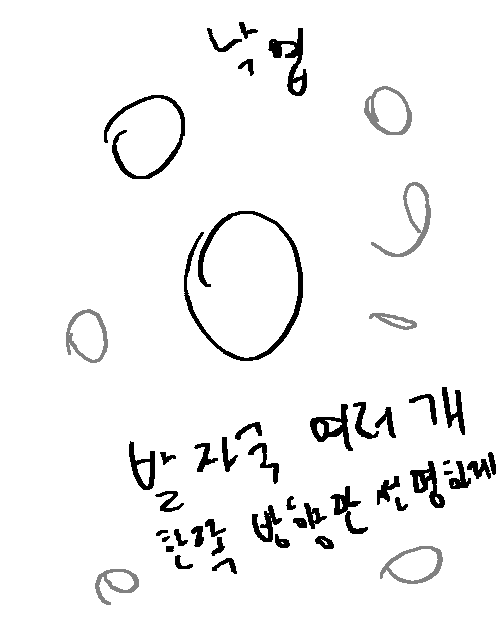 낙엽
발자국 여러개
한쪽 방향만 선명하게